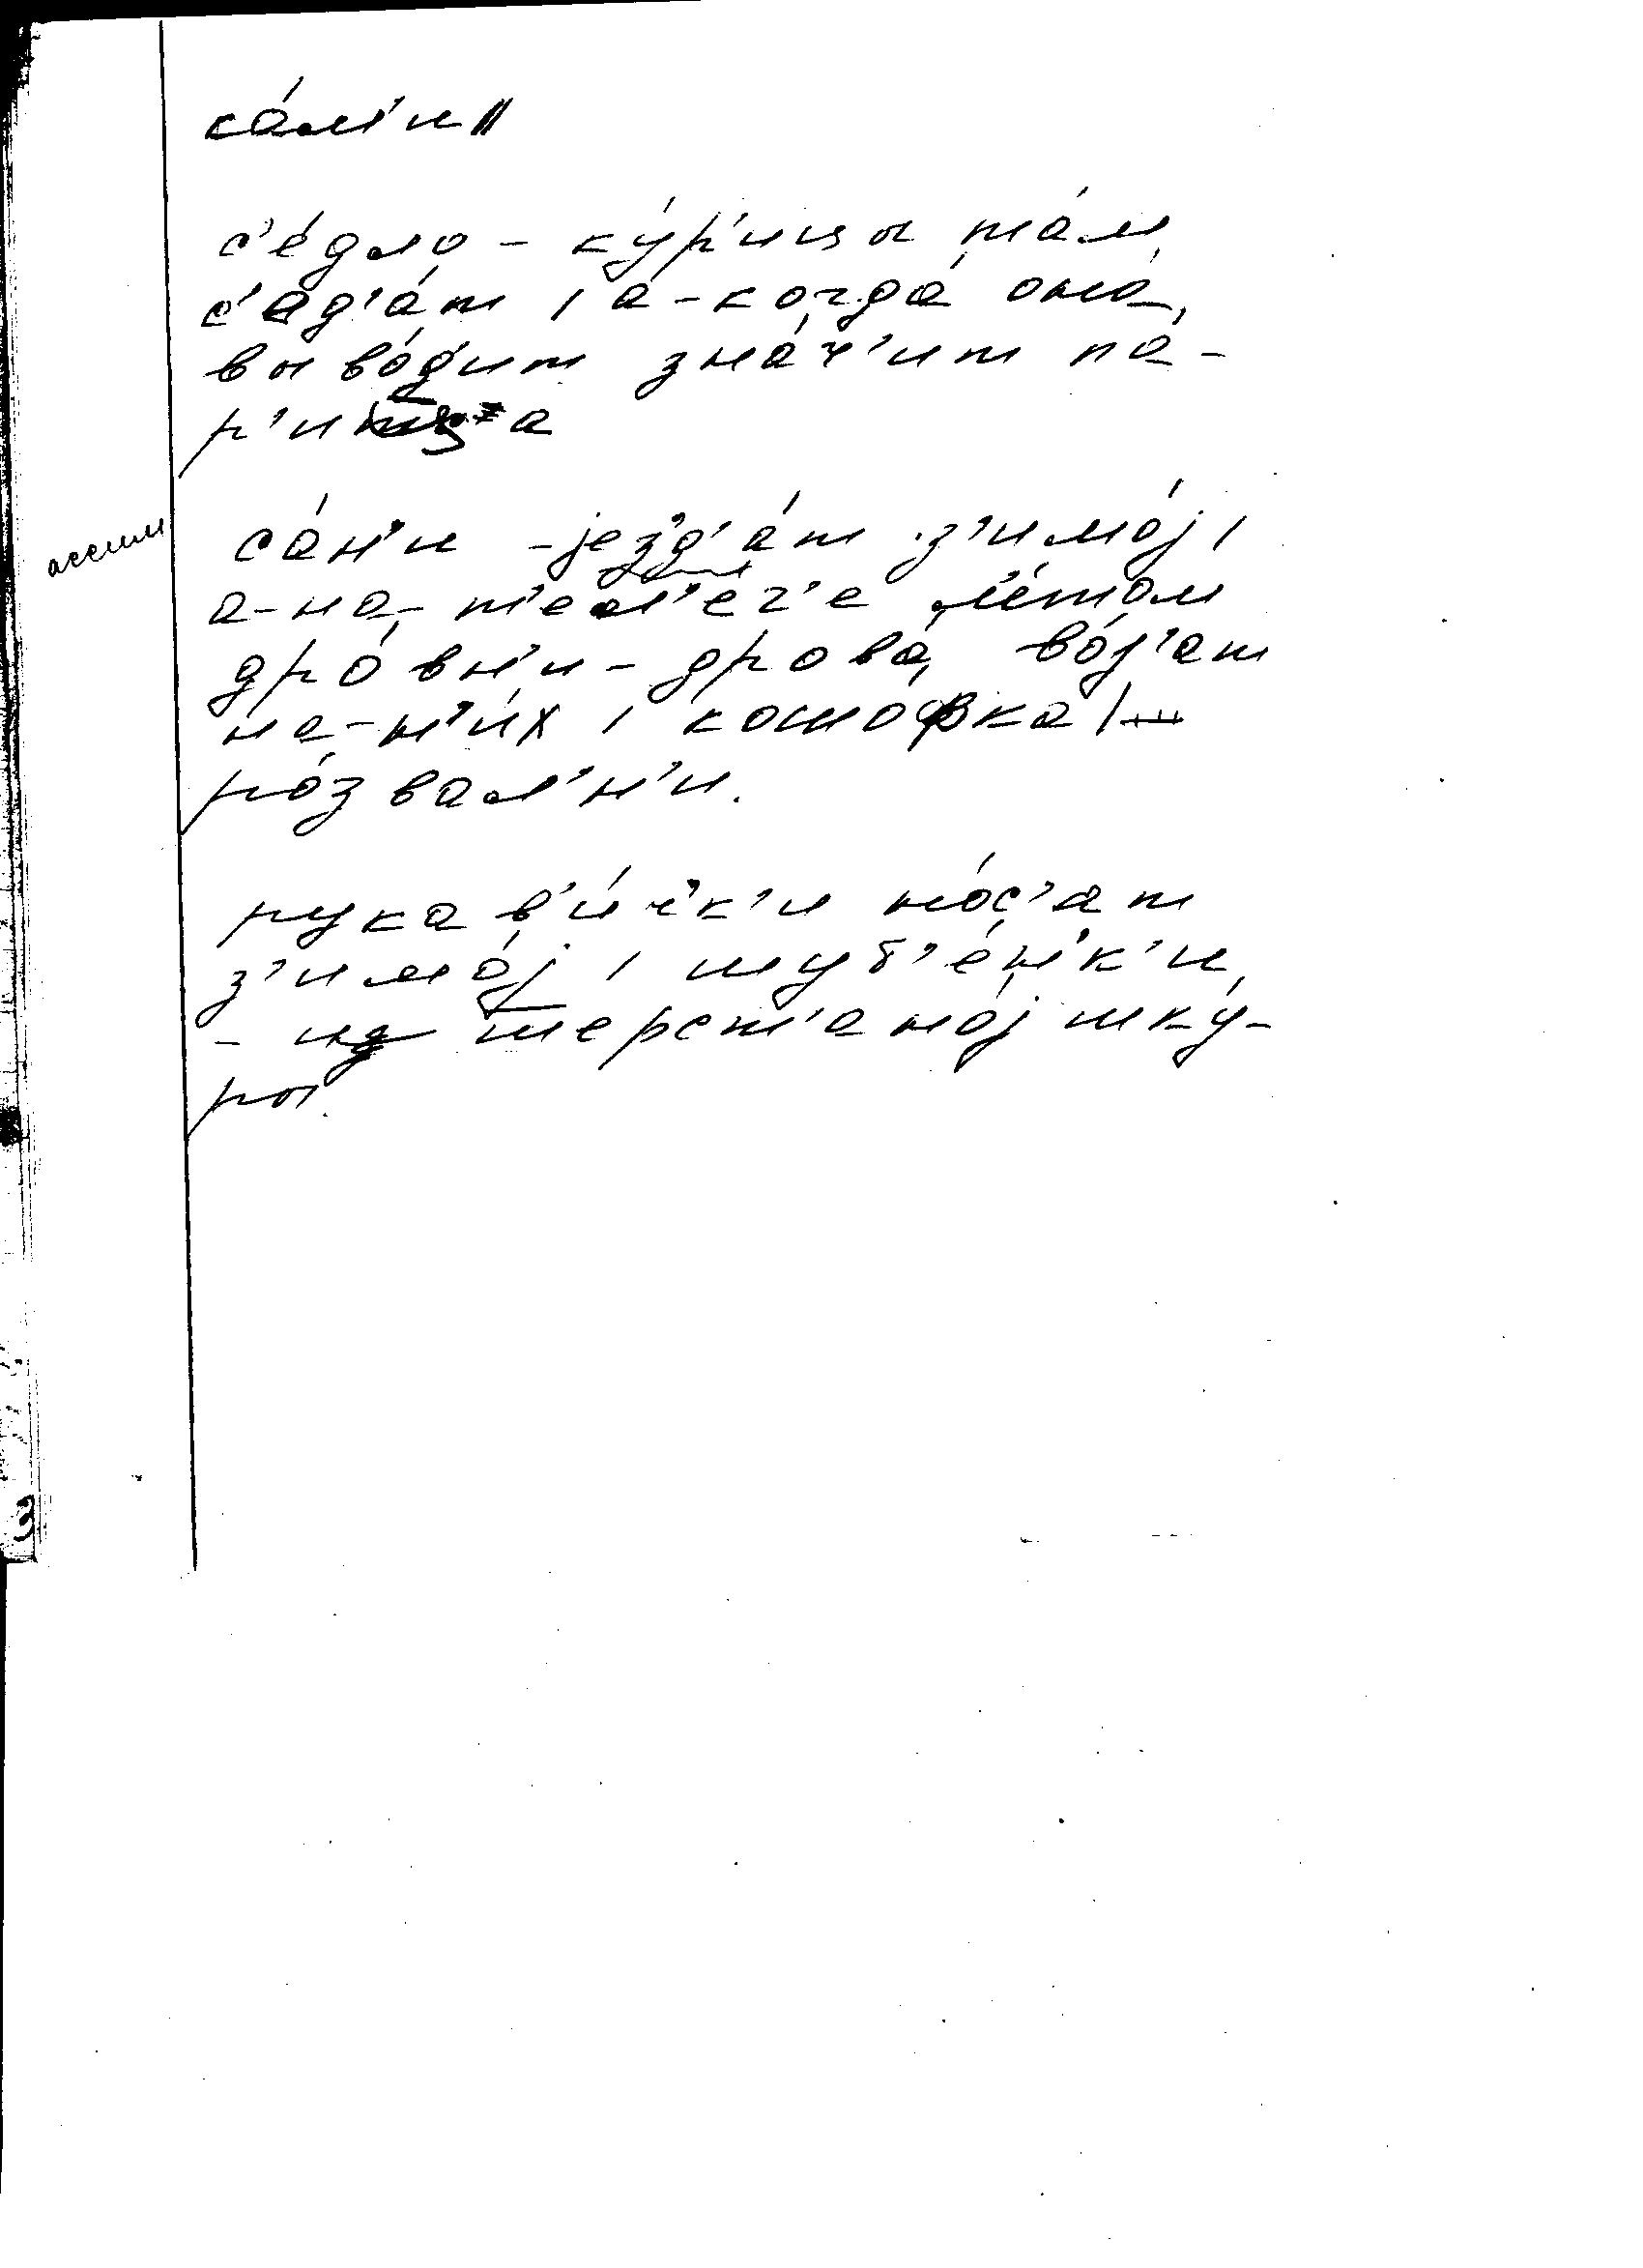 са́м'и ||
с'е́дло - ку́р'ицы та́м
с'ад'а́т | а-когда́ она́
выво́дит зна́ч'ит па́-
са́н'и - језд'а́т з'имо́ј |
ассим
а-на-т'ел'е́г'е л'е́том
дро́вн'и - дрова́ во́з'ат
на-н'и́х | кошофка |
ро́звал'н'и.
рукав'и́чк'и но́с'ат
з'имо́ј | шуб'е́нк'и
- из шерст'аној шку́-
ры.
3